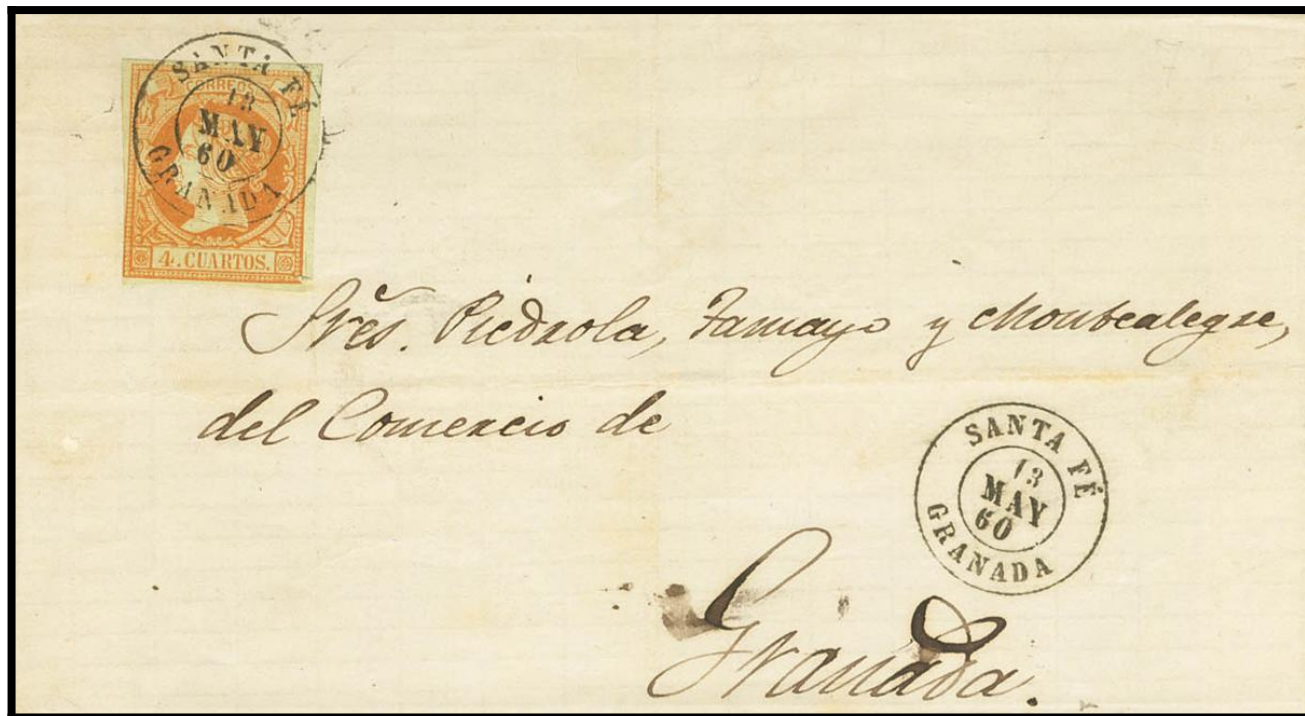 SANTA FÉ
CORREOS
13
MAY
60
GRANADA
4. CUARTOS.
Sres. Piedrola, Tamayo y Montealegre,
del Comercio de
SANTA FÉ
13
MAY
60
GRANADA
Granada.